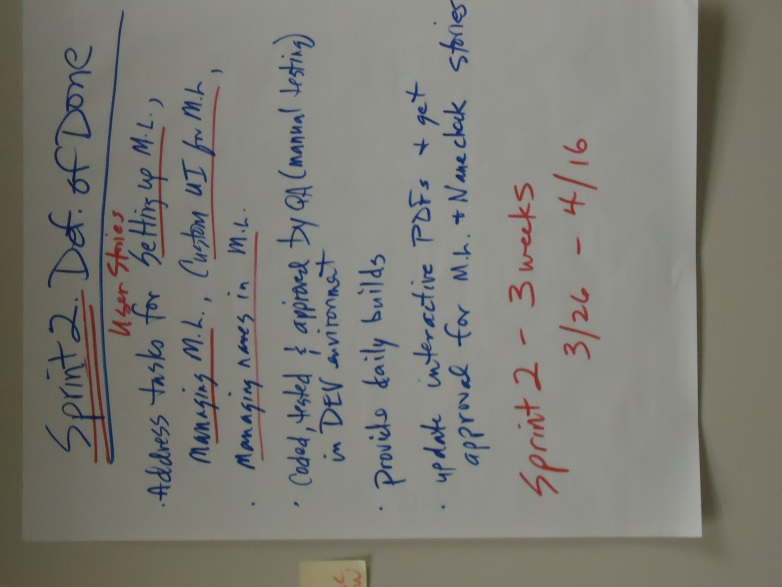 Sprint 2 Def. of Done
User Stories
· Address tasks for Setting up M.L.,
Managing M.L., Custom UI for M.L.,
· Managing names in M.L.
· Coded, tested & approved by QA (manual testing)
in DEV environment
· Provide daily builds
· update interactive PDFs + get
approval for M.L. + Namecheck stories
Sprint 2 - 3 weeks
3/26 - 4/16